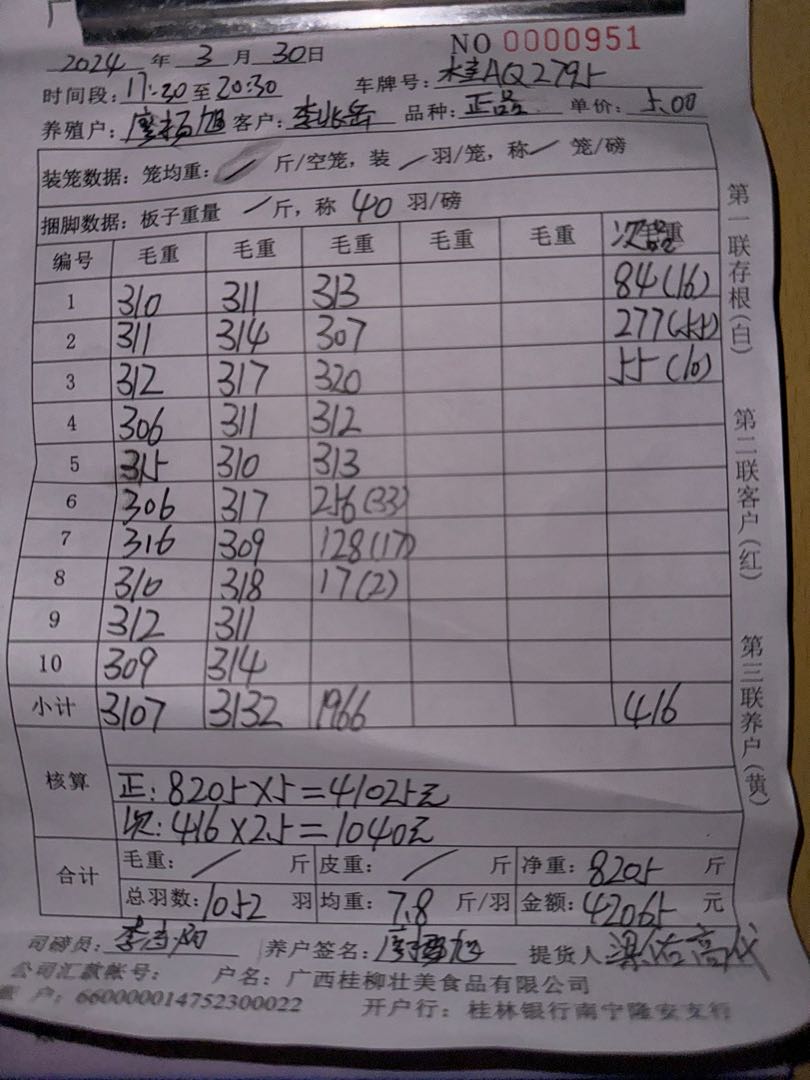 NO 0000951
2024 年 3 月 30日
时间段: 17:30 至 20:30 车牌号: 桂AQ2795
养殖户: 客户: 李兆岳 品种: 正品 单价: 5.00
装笼数据: 笼均重: / 斤/空笼, 装 / 羽/笼, 称 / 笼/磅
捆脚数据: 板子重量 / 斤, 称 40 羽/磅
编号 毛重 毛重 毛重 毛重 毛重
1 310 311 313 84(16)
2 311 314 307 277(55)
3 312 317 320 55(10)
4 306 311 312
5 315 310 313
6 306 317 256(33)
7 316 309 128(17)
8 310 318 17(2)
9 312 311
10 309 314
小计 3107 3132 1966 416
核算
正: 8205×5=41025元
次: 416×2.5=1040元
合计
毛重: / 斤 皮重: / 斤 净重: 8205 斤
总羽数: 1052 羽 均重: 7.8 斤/羽 金额: 42065 元
司磅员: 养户签名: 提货人
公司汇款帐号: 户名: 广西桂柳壮美食品有限公司
户: 660000014752300022 开户行: 桂林银行南宁隆安支行
第一联存根(白)
第二联客户(红)
第三联养户(黄)